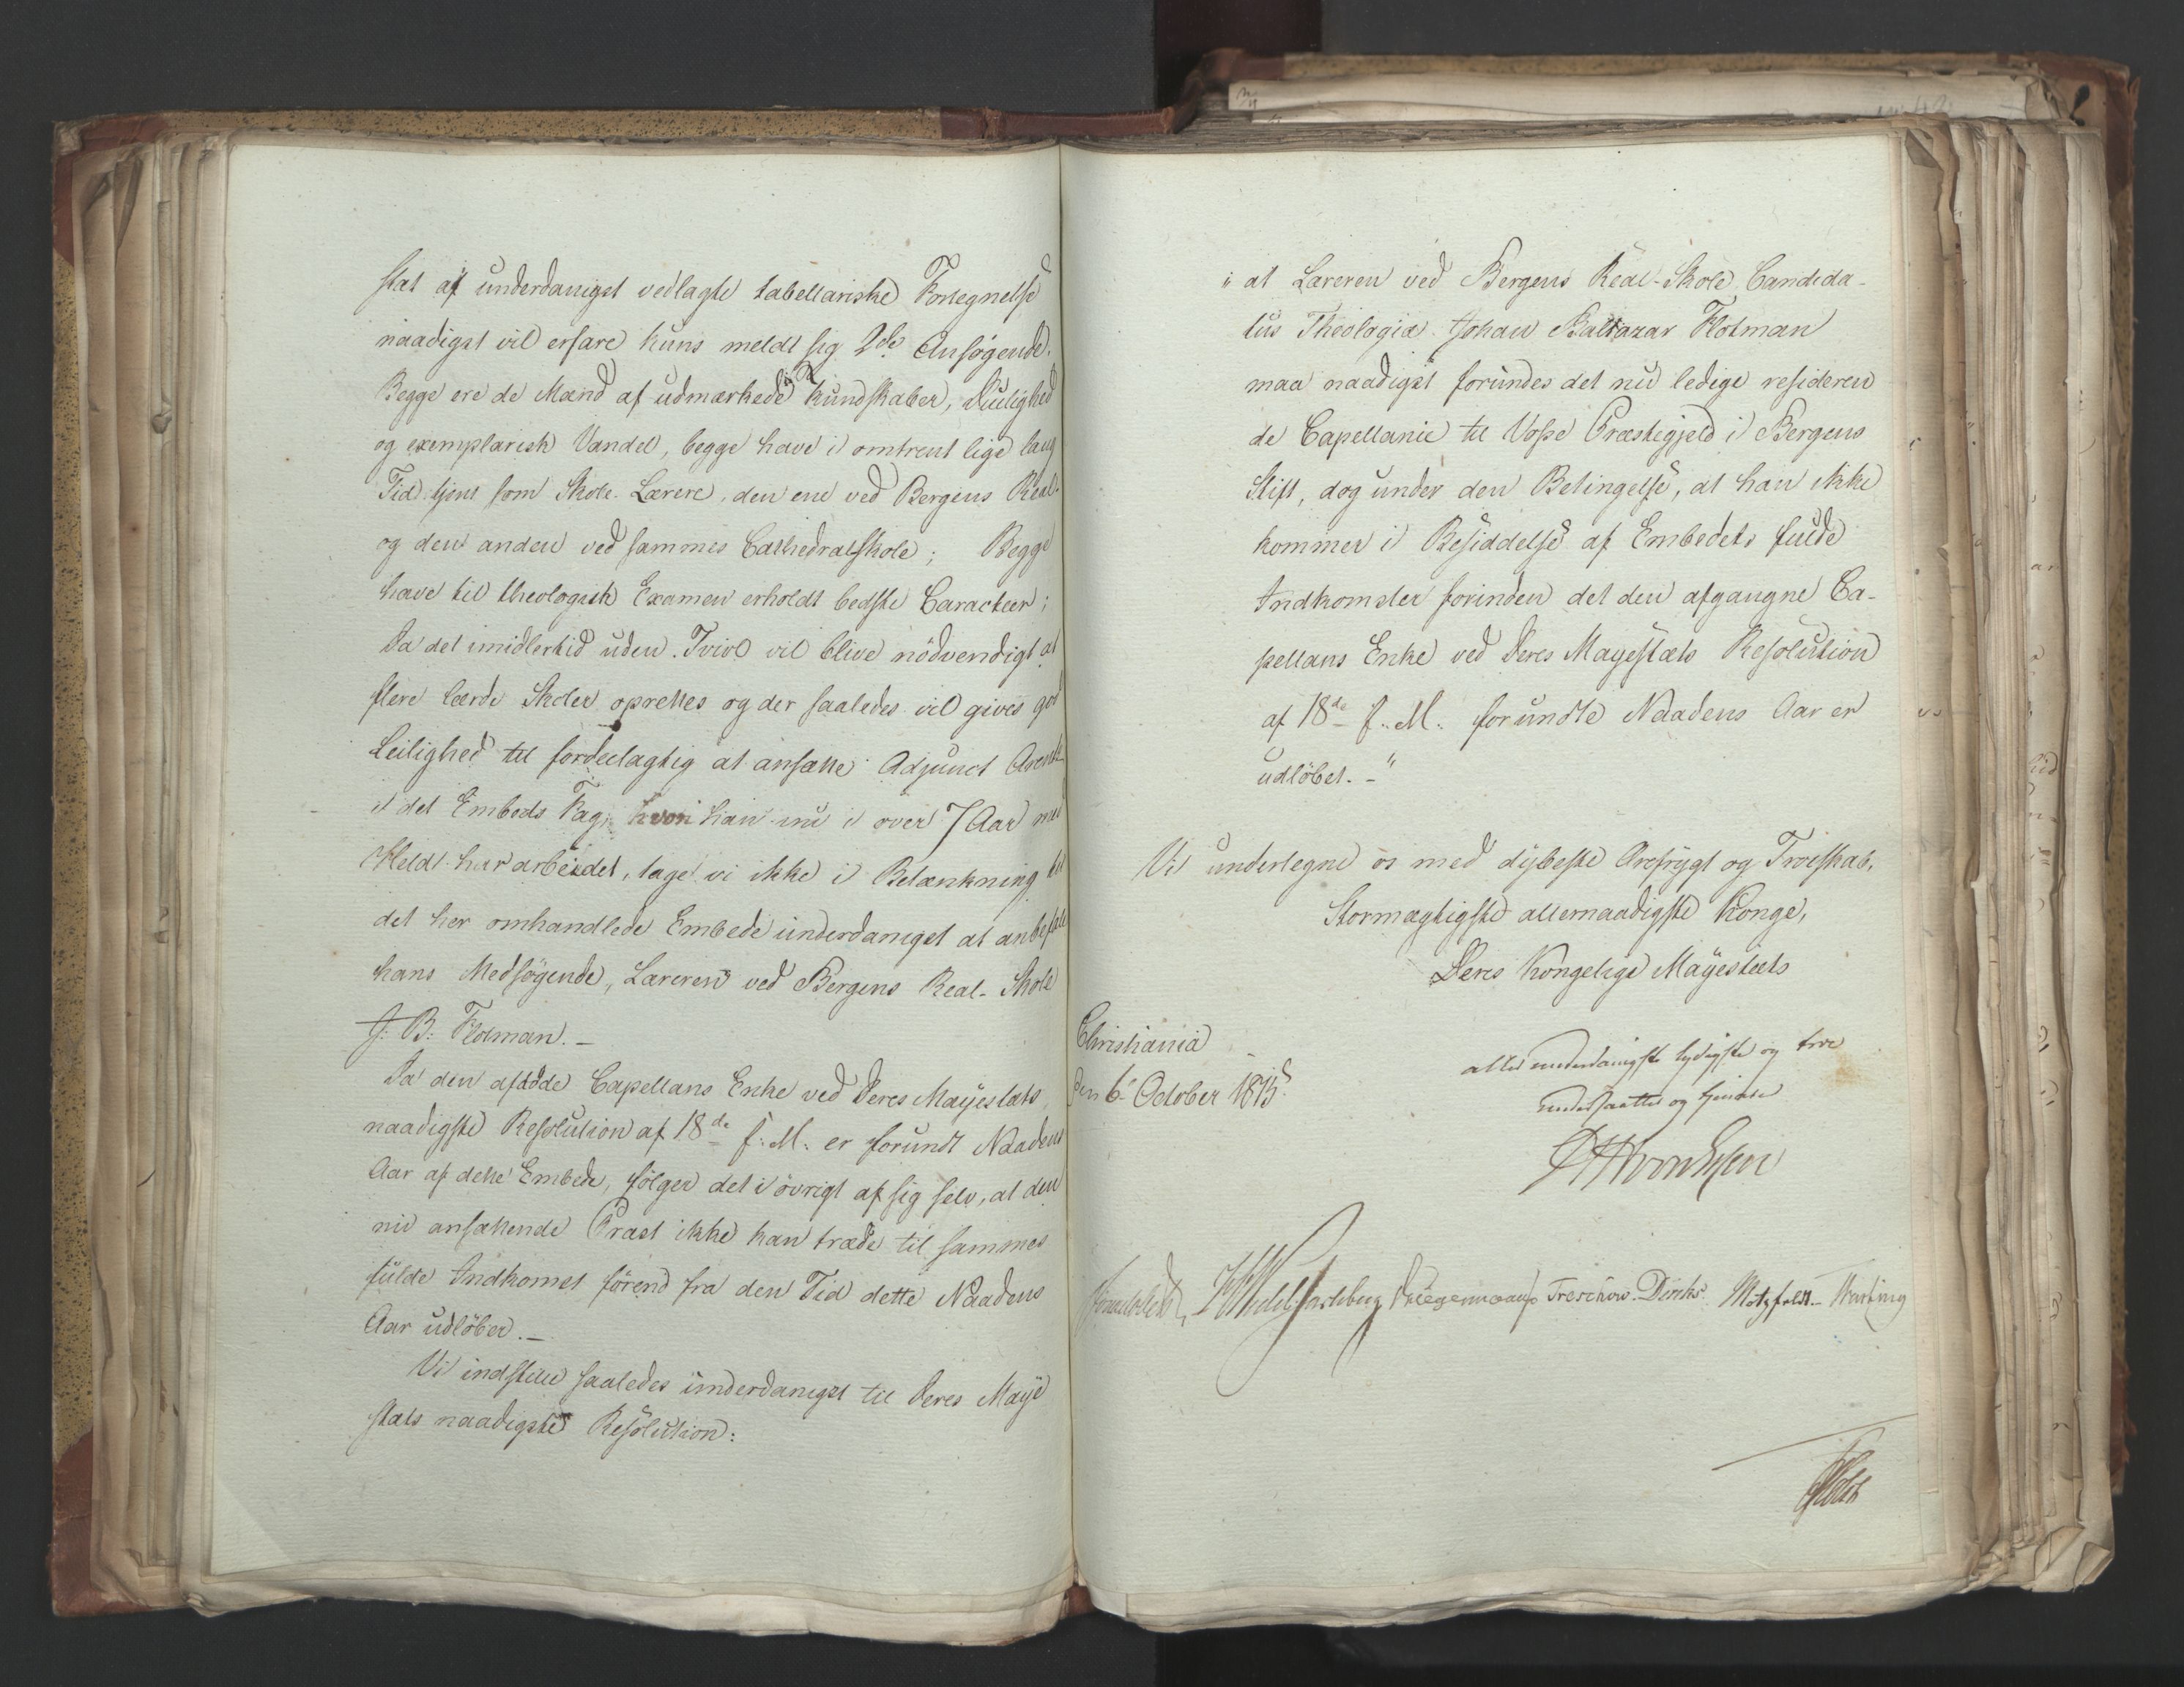 stæt af underdanigst vedlagte tabellariske Fortegnelse
naadigst vil erfare kuns meldt sig 2de Ansøgende.
Begge ere de Mænd af udmærkede Kundskaber, Duelighed
og exemplarisk Vandel, begge have i omtrent lige lang
Tid tjent som Skole-Lærere, den ene ved Bergens Real-
og den anden ved sammes Cathedralskole; Begge
have til theologisk Examen erholdt bedste Caracteer;
Da det imidlertid uden Tvivl vil blive nödvendigt at
flere lærde Skoler oprettes og der saaledes vil gives god
Leilighed til fordeelagtig at ansætte Adjunct Arentz
i det Embeds Fag, hvori han nu i over 7 Aar med
Held har arbeidet, tage vi ikke i Betænkning til
det her omhandlede Embede underdanigst at anbefale
hans Medsögende, Læreren ved Bergens Real-Skole
J: B: Flotman.-
Da den afdöde Capellans Enke ved Deres Mayestæts
naadigste Resolution af 18de f: M: er forundt Naadens
Aar af dette Embede, fölger det i övrigt af sig selv, at den
nu ansættende Præst ikke kan træde til sammes
fulde Indkomst förend fra den Tid dette Naadens
Aar udlöber.-
Vi indstille saaledes underdanigst til Deres Maye
stæts naadigste Resolution:
" at Læreren ved Bergens Real-Skole Candida-
tus Theologiæ Johan Baltazar Flotman
maa naadigst forundes det nu ledige resideren
de Capellanie til Vosse Præstegjeld i Bergens
Stift, dog under den Betingelse, at han ikke
kommer i Besiddelse af Embedets fulde
Indkomster forinden det den afgangne Ca-
pellans Enke ved Deres Mayestæts Resolution
af 18de f: M: forundte Naadens Aar er
udlöbet.-"
Vi undertegne os med dybeste Ærefrygt og Troeskab,
Stormægtigste allernaadigste Konge,
Deres Kongelige Mayestæts
Christiania
den 6 October 1815
allerunderdanigste lydigste og troe
undersaatter og tjenere
von Essen
Sommerhielm Wedel Jarlsberg Krieger Treschow. Diriks. Motzfeldt
Holst